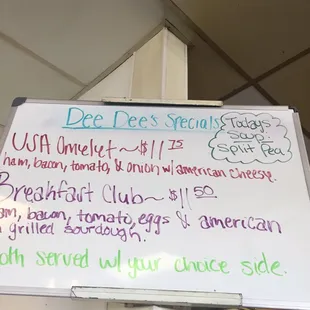 Dee Dee's Specials
Today's
Soup
Split Pea
USA Omelet ~ $11 75
ham, bacon, tomato, & onion w/ american cheese.
Breakfast Club ~ $11 50
am, bacon, tomato, eggs & american
n grilled sourdough.
oth served w/ your choice side.